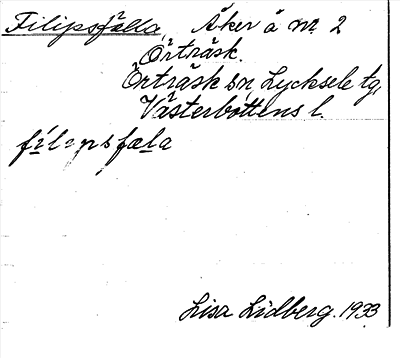 Filipsfälla, Åker å nr 2
Örträsk.
Örträsk sn, Lycksele tg,
Västerbottens l.
fílipsfæla
Lisa Lidberg. 1933